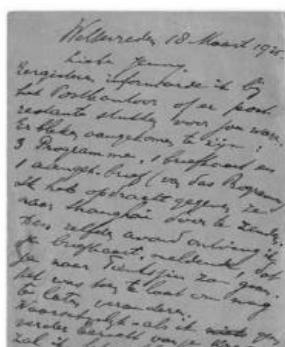 Weltevreden 18 Maart 1925.
Lieve Jenny.
Eergisteren informeerde ik bij
het Postkantoor of er post-
restante stukken voor jou waren.
Er bleken aangekomen te zijn:
3 Programma, 1 briefkaart en
1 brief (van das Programm)
Ik heb opdracht gegeven, ze
naar Shanghai door te zenden.
Den zelfden avond ontving ik
je briefkaart, meldende, dat
je naar Tientsjin zou gaan.
Het was toen te laat om nog
te laten veranderen.
Waarschijnlijk als ik
verder van je
zal ik